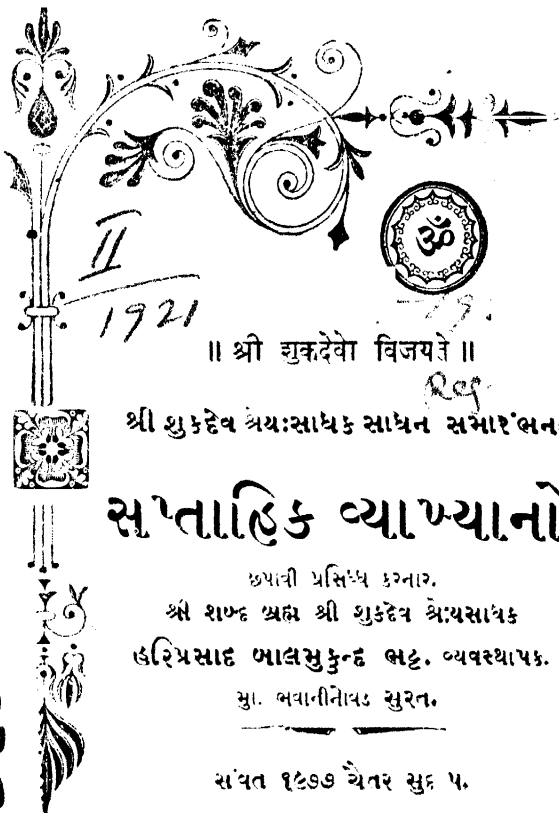 ॐ
II
1921
॥ श्री शुकदेवो विजयते ॥
Reg.
શ્રી શુકદેવ શ્રેયઃસાધક સાધન સમારંભન
સપ્તાહિક વ્યાખ્યાનો
છપાવી પ્રસિધ્ધ કરનાર.
શ્રી શબ્દ બ્રહ્મ શ્રી શુકદેવ શ્રેયઃસાધક
હરિપ્રસાદ બાલમુકુન્દ ભટ્ટ. વ્યવસ્થાપક.
મુા. ભવાનીનોવડ સુરત.
સંવત ૧૯૭૭ ચૈતર સુદ ૫.